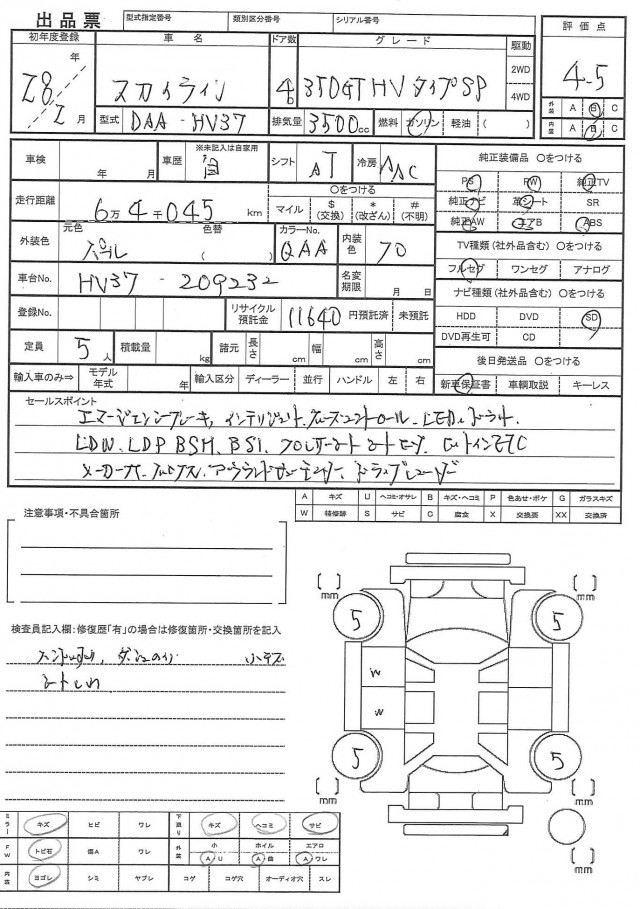 出品票
型式指定番号 類別区分番号 シリアル番号
初年度登録 車名 ドア数 グレード 駆動 評価点
28年2月 スカイライン 4 350GT HV タイプSP 2WD 4WD 4.5
型式 DAA-HV37 排気量 3500cc 燃料 ガソリン 軽油 ( )
外装 A B C
内装 A B C
車検 年 月 車歴 ※未記入は自家用 自 シフト AT 冷房 AAC
純正装備品 ○をつける
PS PW 純正TV
純正ナビ 革シート SR
純正AW エアB ABS
走行距離 6万4千045km ○をつける
マイル $(交換) *(改ざん) #(不明)
外装色 元色 パール 色替 ( ) カラーNo. QAA 内装色 70
TV種類(社外品含む) ○をつける
フルセグ ワンセグ アナログ
車台No. HV37-209232 名変期限 月 日
ナビ種類(社外品含む) ○をつける
HDD DVD SD
DVD再生可 CD
登録No. リサイクル預託金 11640 円預託済 未預託
定員 5人 積載量 kg 諸元 長さ cm 幅 cm 高さ cm
後日発送品 ○をつける
新車保証書 車輌取説 キーレス
輸入車のみ⇒ モデル年式 年 輸入区分 ディーラー 並行 ハンドル 左 右
セールスポイント
エマージェンシーブレーキ、インテリジェントクルーズコントロール、LEDヘッドライト、
LDW、LDP BSW、BSI、フロントシートヒーター
メーカーナビ、アラウンドビューモニター、ドライブレコーダー
A キズ U ヘコミ・オサレ B キズ・ヘコミ P 色あせ・ボケ G ガラスキズ
W 補修跡 S サビ C 腐食 X 交換要 XX 交換済
注意事項・不具合箇所
検査員記入欄:修復歴「有」の場合は修復箇所・交換箇所を記入
小キズ
シートしわ
mm mm
5 5
W
W
5 5
mm mm
mm
ミラー キズ ヒビ ワレ 下廻り キズ ヘコミ サビ
FW トビ石 傷A ワレ 外装 小 A・U ホイル A・曲 エアロ A・ワレ
内装 ヨゴレ シミ ヤブレ コゲ コゲ穴 オーディオ穴 スレ